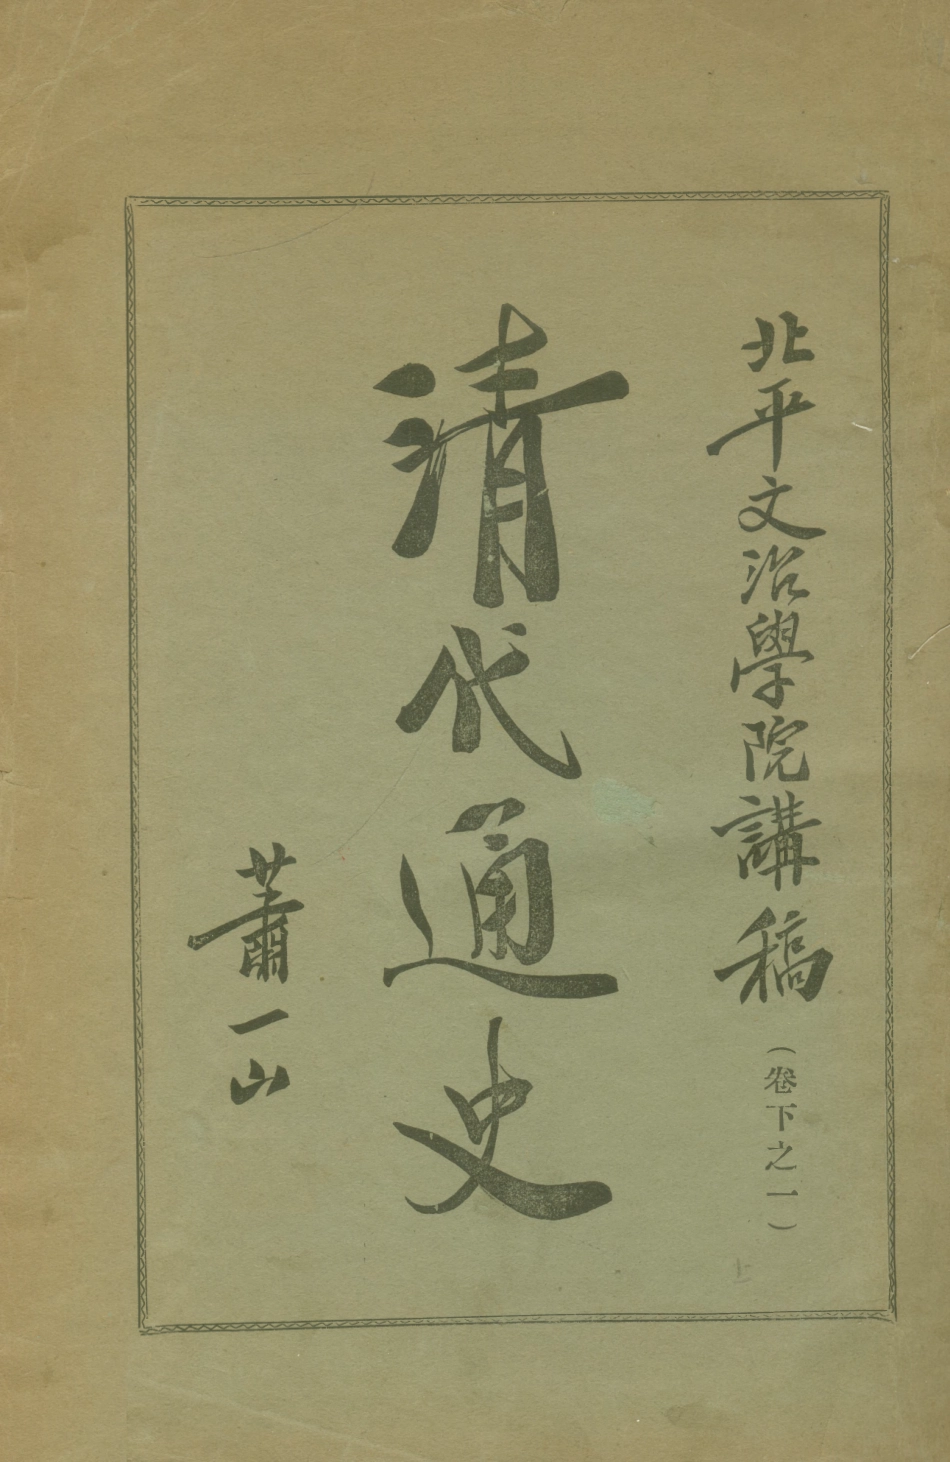 北平文治學院講稿（卷下之一）
清代通史
蕭一山
上